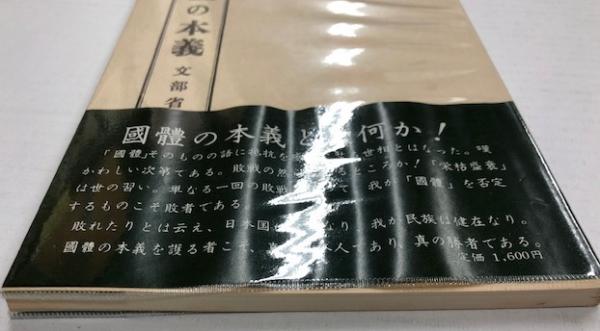 の本義
文部省
國體の本義と 何か！
「國體」そのものの語に抵抗を 世相とはなった。嘆
かわしい次第である。敗戦の然 るところか！「栄枯盛衰」
は世の習い。単なる一回の敗戦 て 我が「國體」を否定
するものこそ敗者である
敗れたりとは云え、日本国 なり 我が民族は健在なり。
國體の本義を護る者こそ、真 人であり、真の勝者である。
定価 1,600円